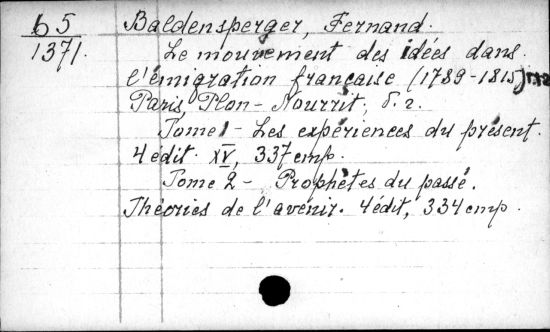 б 5
1371.
Baldensperger, Fernand.
Le mouvement des idées dans
l'émigration française (1789-1815)
Paris, Plon-Nourrit, б. г.
Tome 1 - Les expériences du présent.
4 édit. XV, 337 стр.
Tome 2 - Prophètes du passé.
Théories de l'avenir. 4 édit, 334 стр.